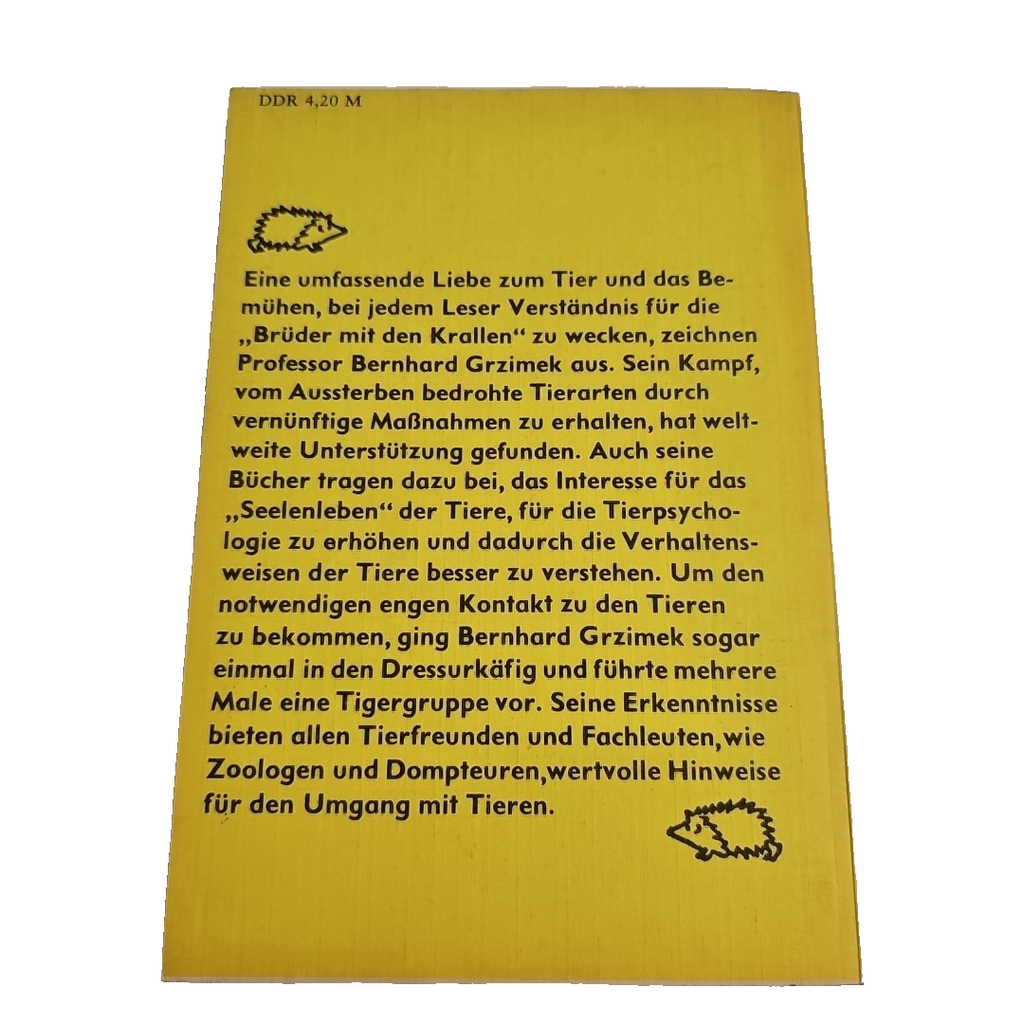 DDR 4,20 M
Eine umfassende Liebe zum Tier und das Be-
mühen, bei jedem Leser Verständnis für die
„Brüder mit den Krallen“ zu wecken, zeichnen
Professor Bernhard Grzimek aus. Sein Kampf,
vom Aussterben bedrohte Tierarten durch
vernünftige Maßnahmen zu erhalten, hat welt-
weite Unterstützung gefunden. Auch seine
Bücher tragen dazu bei, das Interesse für das
„Seelenleben“ der Tiere, für die Tierpsycho-
logie zu erhöhen und dadurch die Verhaltens-
weisen der Tiere besser zu verstehen. Um den
notwendigen engen Kontakt zu den Tieren
zu bekommen, ging Bernhard Grzimek sogar
einmal in den Dressurkäfig und führte mehrere
Male eine Tigergruppe vor. Seine Erkenntnisse
bieten allen Tierfreunden und Fachleuten, wie
Zoologen und Dompteuren, wertvolle Hinweise
für den Umgang mit Tieren.